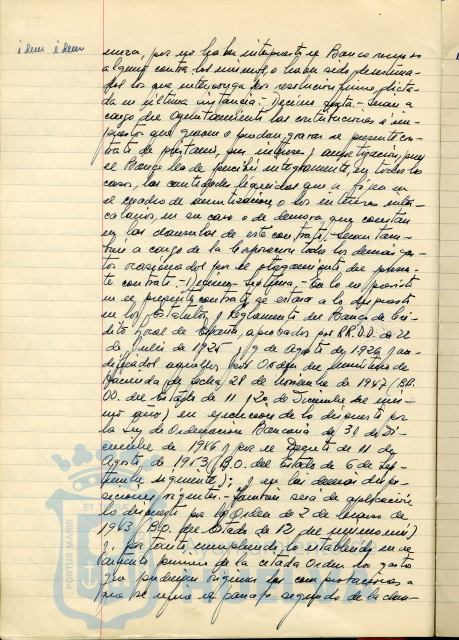 idem idem
nueva, por no haber interpuesto el Banco recurso
alguno contra los mismos, o haber sido desestima-
dos los que interponga por resolución firme dicta-
da en última instancia.- Décimo sexta.- Serán a
cargo del Ayuntamiento las contribuciones e im-
puestos que graven o puedan gravar el presente con-
trato de préstamo, sus intereses y amortización, pues
el Banco ha de percibir íntegramente, en todos los
casos, las cantidades líquidas que se fijen en
el cuadro de amortización, o los intereses inter-
calarios, en su caso o de demora que constan
en las cláusulas de este contrato.- Serán tam-
bién a cargo de la Corporación todos los demás gas-
tos ocasionados por el otorgamiento del presen-
te contrato.- Décimo séptima.- En lo no previsto
en el presente contrato se estará a lo dispuesto
en los Estatutos y Reglamento del Banco de Cré-
dito Local de España, aprobados por RR.DD. de 22
de Julio de 1925 y 9 de Agosto de 1926, mo-
dificados aquellos por Orden del Ministerio de
Hacienda de fecha 28 de Noviembre de 1947 (BB.
OO. del Estado de 11 y 20 de Diciembre del mis-
mo año) en ejecución de lo dispuesto por
la Ley de Ordenación Bancaria de 31 de Di-
ciembre de 1946 y por el Decreto de 11 de
Agosto de 1953 (B.O. del Estado de 6 de Sep-
tiembre siguiente); y en las demás dispo-
siciones vigentes.- También será de aplicación
lo dispuesto por la Orden de 2 de Marzo de
1963 (B.O. del Estado de 12 del mismo mes)
y, por tanto cumpliendo lo establecido en el
artículo primero de la citada Orden los gastos
que pudieran originar las comprobaciones a
que se refiere el párrafo segundo de la cláu-
PORTUS MARIS
ET TERRAE